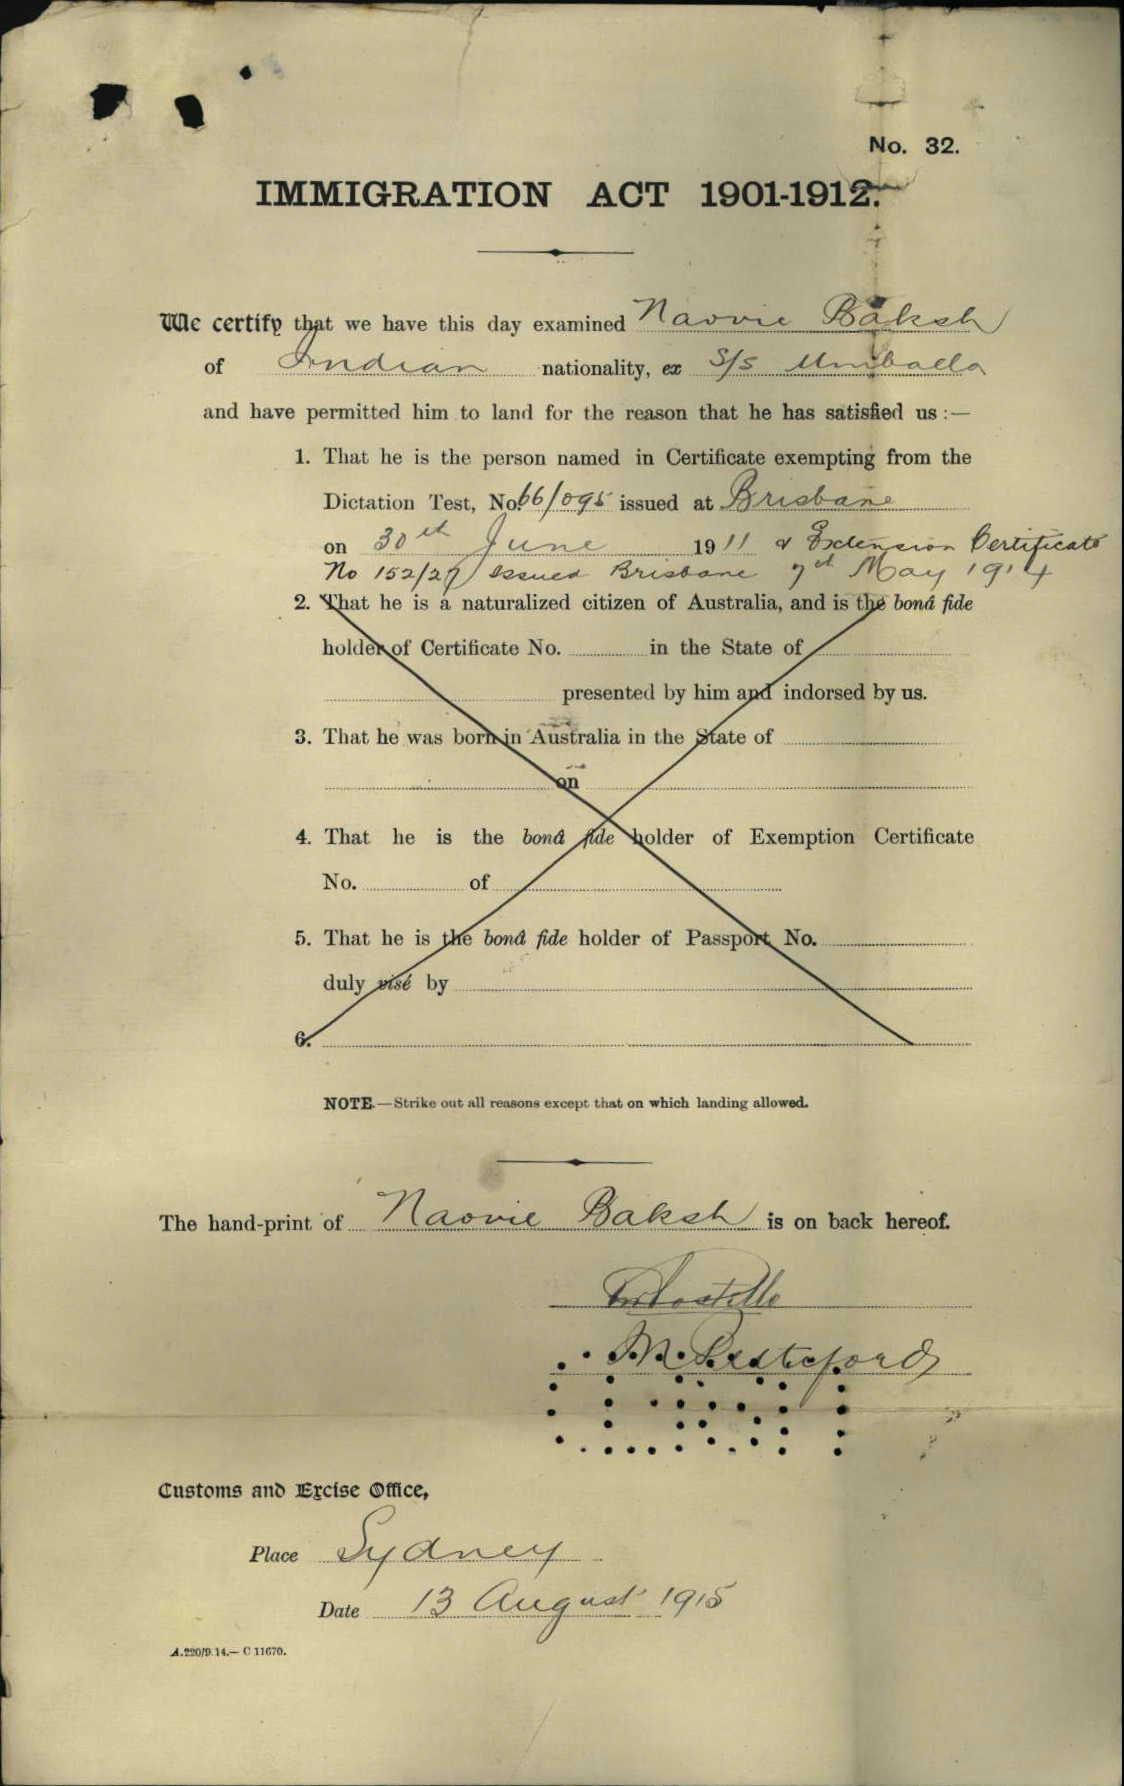 No. 32.
IMMIGRATION ACT 1901-1912.
We certify that we have this day examined Naovie Baksh
of Indian nationality, ex S/S Umballa
and have permitted him to land for the reason that he has satisfied us :—
1. That he is the person named in Certificate exempting from the
Dictation Test, No. 66/095 issued at Brisbane
on 30th June 1911 & Extension Certificate
No 152/27 Issued Brisbane 7th May 1914
2. That he is a naturalized citizen of Australia, and is the bonâ fide
holder of Certificate No. in the State of
presented by him and indorsed by us.
3. That he was born in Australia in the State of
on
4. That he is the bonâ fide holder of Exemption Certificate
No. of
5. That he is the bonâ fide holder of Passport No.
duly visé by
6.
NOTE.—Strike out all reasons except that on which landing allowed.
The hand-print of Naovie Baksh is on back hereof.
Customs and Excise Office,
Place Sydney
Date 13 August 1915
A.220/9.14.— C 11670.